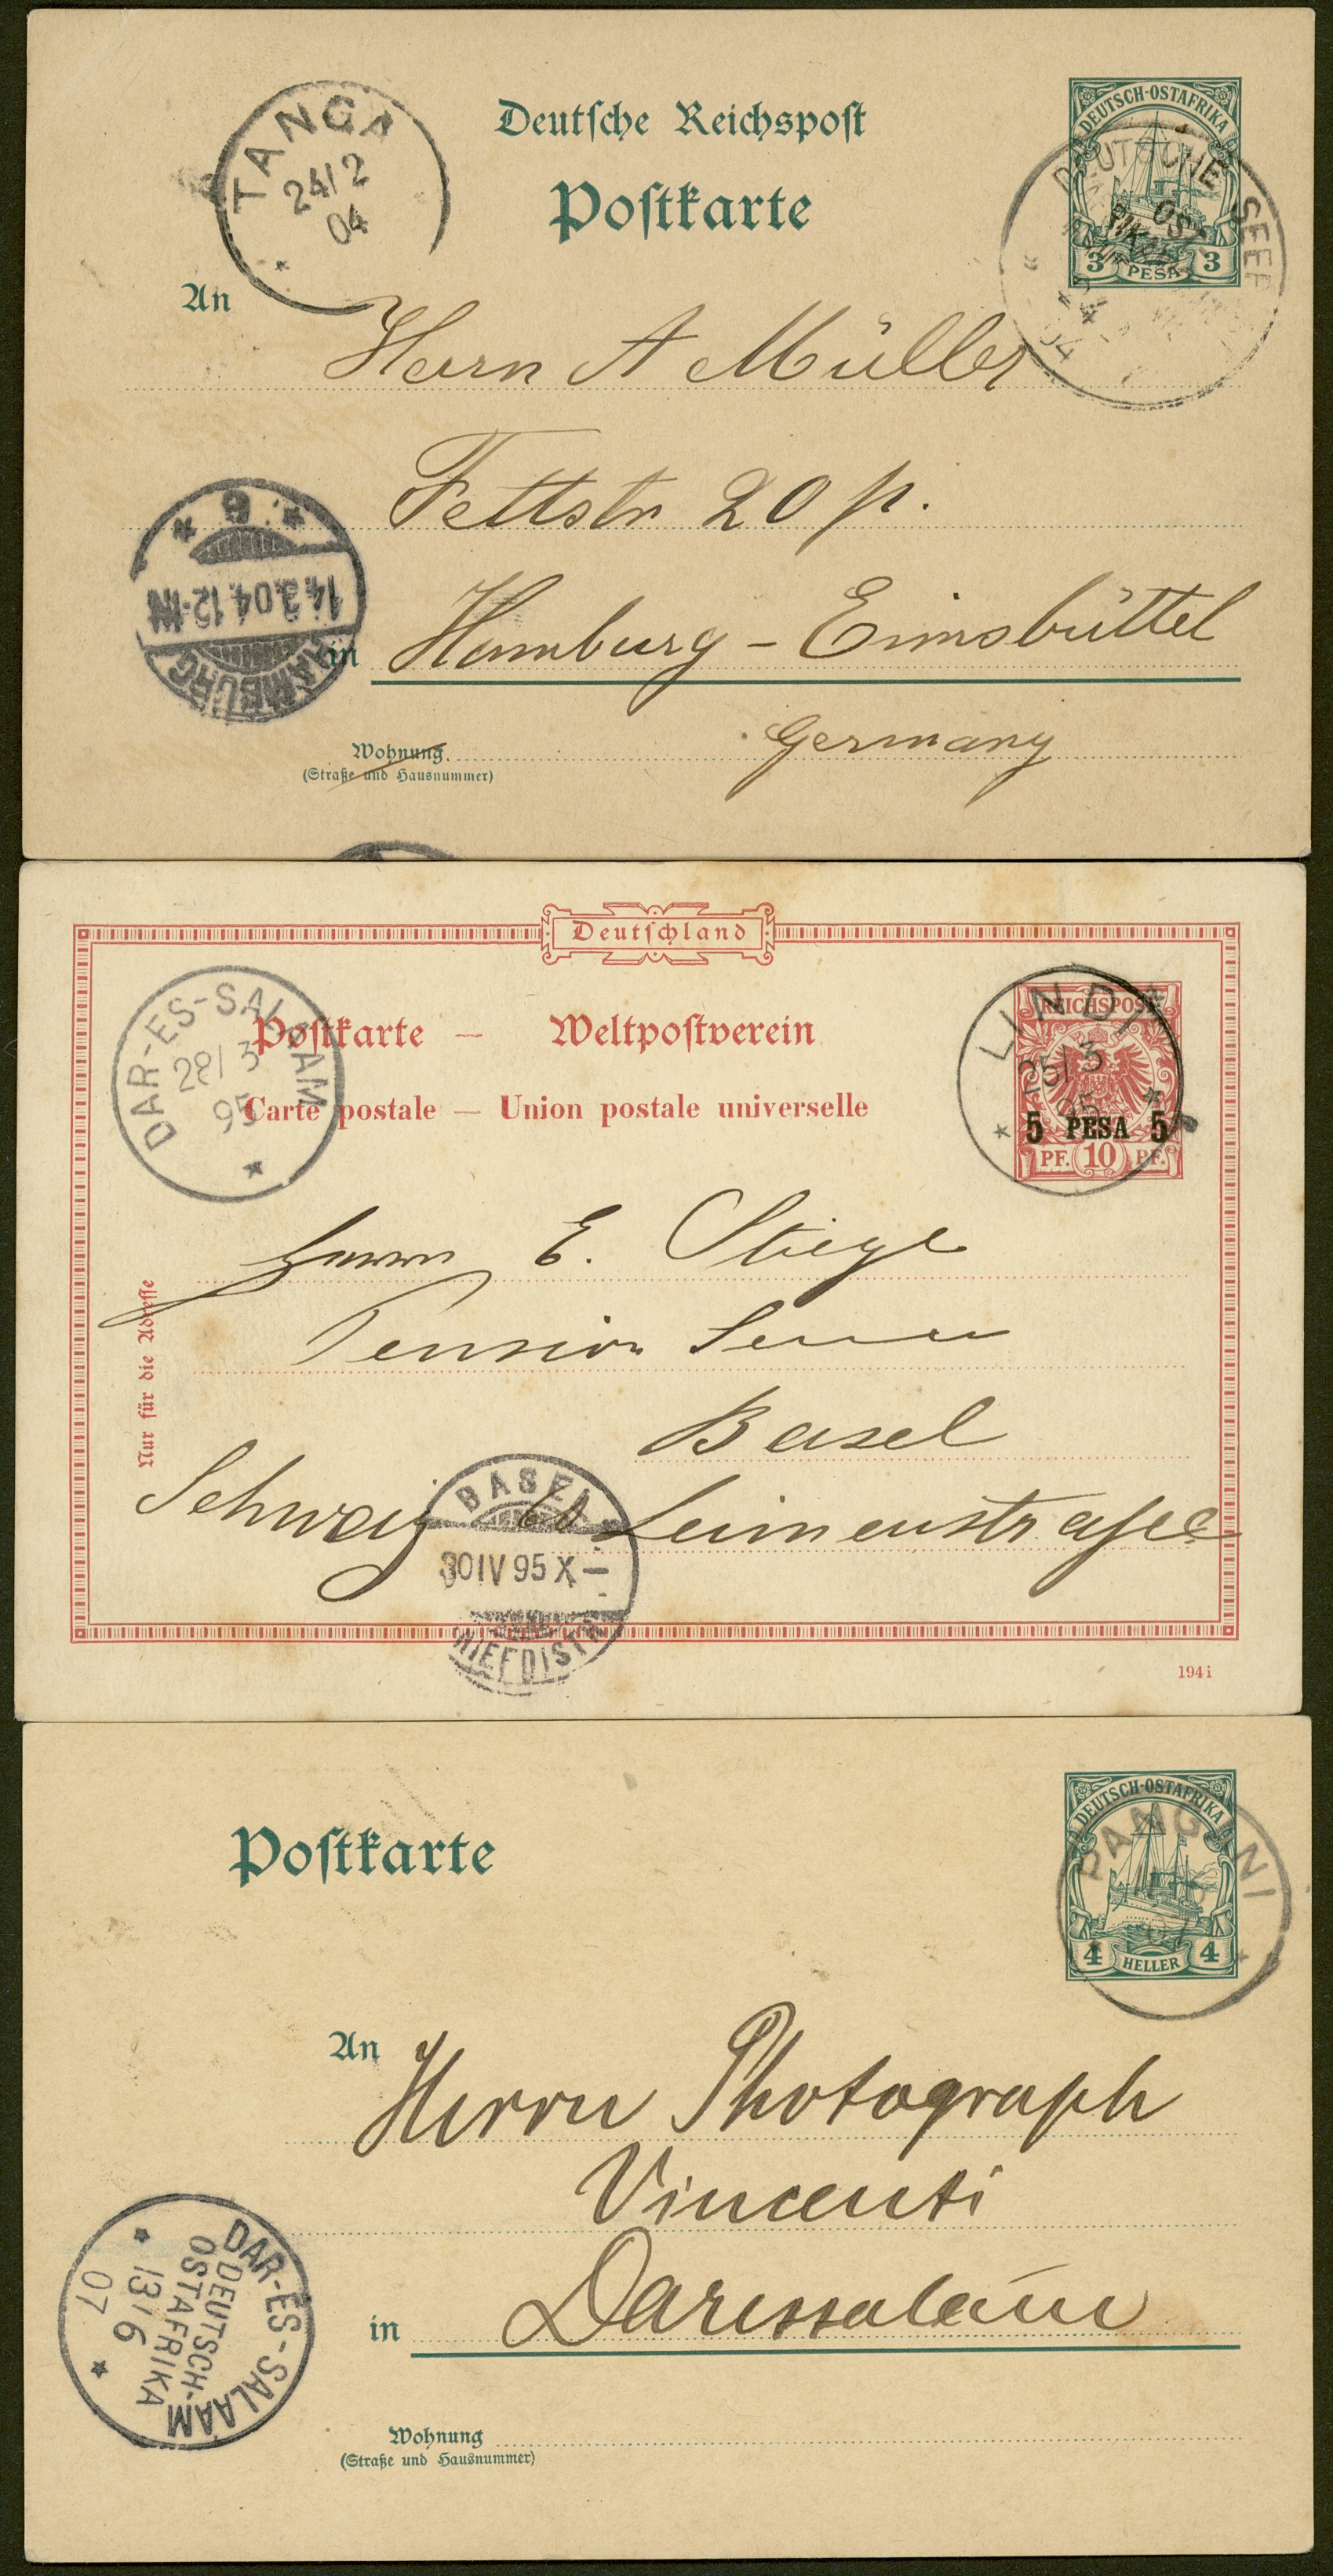 Deutsche Reichspost
Postkarte
TANGA
24/2
04
DEUTSCH-OSTAFRIKA
3 PESA 3
DEUTSCHE SEEP
OST
04
An
Herrn A Müller
Fettstr 20 p.
* 9 *
14.3.04.12-1N
HAMBURG
in Hamburg - Eimsbüttel
Germany
Wohnung
(Straße und Hausnummer)
Deutschland
DAR-ES-SALAAM
28/3
95
Postkarte — Weltpostverein
Carte postale — Union postale universelle
LINDI
25/3
95
REICHSPOST
5 PESA 5
PF. 10 PF.
Nur für die Adresse
Herrn E. Stiegl
Pension
Basel
Schweiz Leimenstrasse
BASEL
30 IV 95 X—
BRIEFDISTR
194 i
Postkarte
DEUTSCH-OSTAFRIKA
4 HELLER 4
PANGANI
07
An
Herrn Photograph
Vincenti
in Daressalam
DAR-ES-SALAAM
DEUTSCH-
OSTAFRIKA
13/6
07
Wohnung
(Straße und Hausnummer)